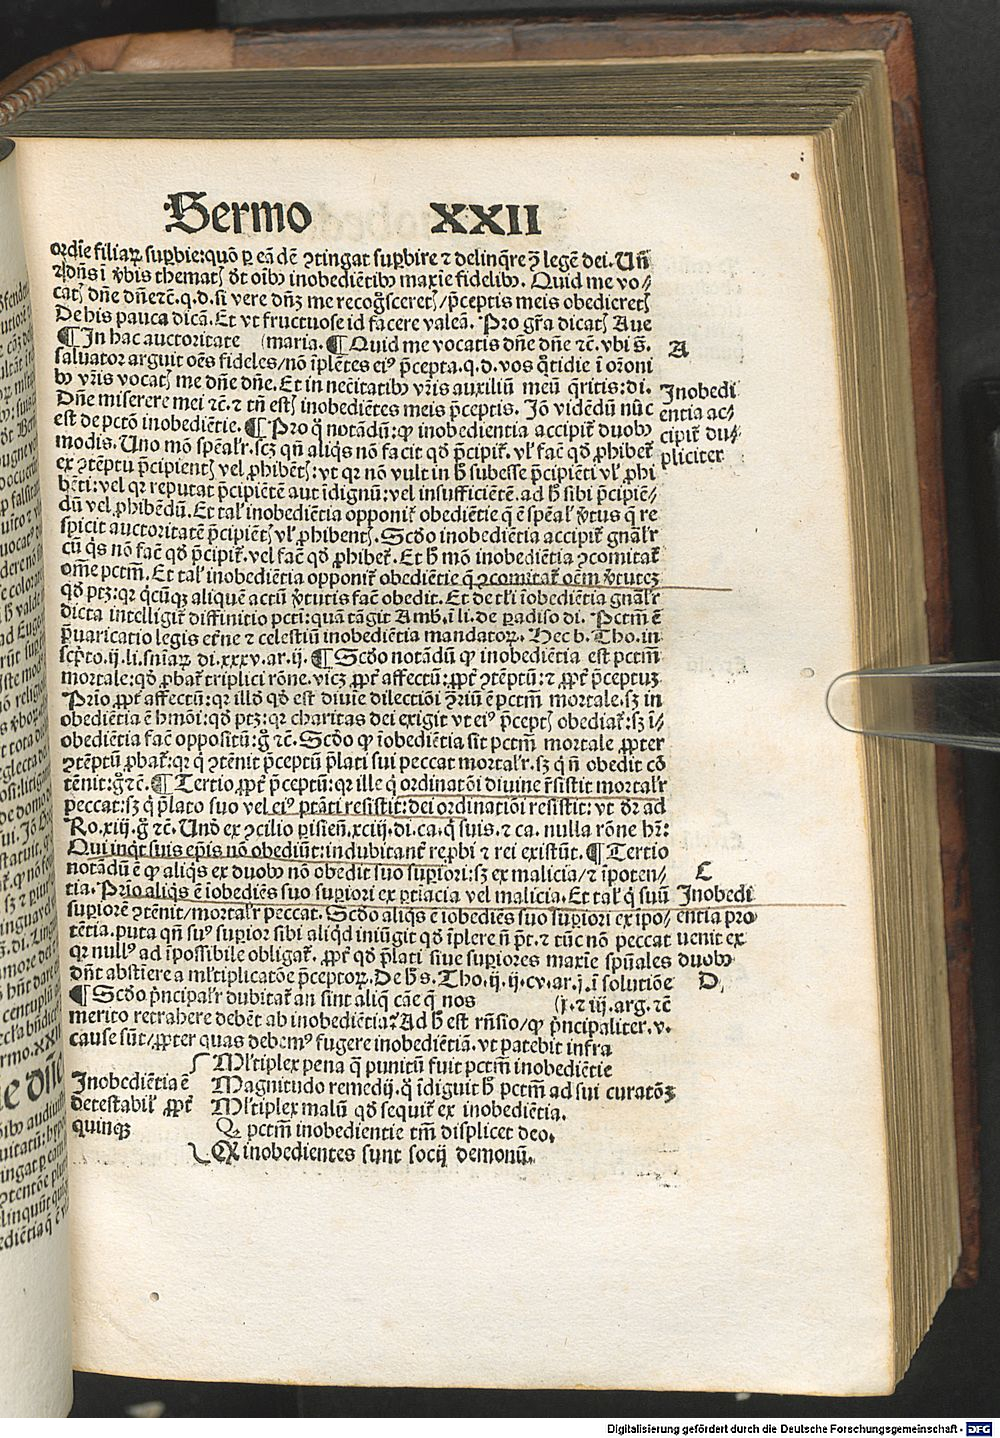 Sermo XXII
ordīe filiaꝝ supbie: quō ꝑ eā dē ꝯtingat supbire ⁊ delinq̄re ꝯ̄ legē dei. Un̄
⁊ dn̄s ī ꝟbis themat̄ꝭ dt̄ oīb⁹ inobediētib⁹ maxīe fidelib⁹. Quid me vo/
catꝭ dn̄e dn̄e ⁊c̄. q. d. si vere dn̄ꝫ me recoḡsceretꝭ / p̄ceptis meis obediretꝭ
De his pauca dicā. Et vt fructuose id facere valeā. Pro gr̄a dicatꝭ Aue
¶ In hac auctoritate (maria. ¶ Quid me vocatis dn̄e dn̄e ⁊c̄. vbi s̄.
saluator arguit oēs fideles / nō īplētes ei⁹ p̄cepta. q. d. vos q̄tidie ī or̄oni
b⁹ vr̄is vocatꝭ me dn̄e dn̄e. Et in nec̄itatib⁹ vr̄is auxiliū meū q̄ritis: di.
Dn̄e miserere mei ⁊c̄. ⁊ tn̄ estꝭ inobediētes meis p̄ceptis. Jō vidēdū nūc
est de pctō inobediētie. ¶ Pro q̊ notādū: ꝙ inobedientia accipit̄ duob⁹
modis. Uno mō spēalr̄. scꝫ qn̄ aliq̄s nō facit qd̄ p̄cipit̄. vl̄ facit qd̄ ꝓhibet̄
ex ꝯtēptu p̄cipientꝭ vel ꝓhibētꝭ: vt qr nō vult in h̄ subesse p̄cipiēti vl̄ ꝓhi
bēti: vel qr reputat p̄cipiētē aut īdignū: vel insufficiētē. ad h̄ sibi p̄cipiē/
dū vel ꝓhibēdū. Et tal̄ inobediētia opponit̄ obediētie q̄ ē spēal̄ ꝟtus q̄ re
spicit auctoritatē p̄cipiētꝭ vl̄ ꝓhibentꝭ. Scd̄o inobediētia accipit̄ gn̄alr̄
cū q̄s nō facit qd̄ p̄cipit̄. vel facit qd̄ ꝓhibet̄. Et h̄ mō inobediētia ꝯcomitat̄
om̄e pctm̄. Et tal̄ inobediētia opponit̄ obediētie q̄ ꝯcomitat̄ oēm ꝟtuteꝫ
qd̄ ptꝫ: qr q̄cūqꝫ aliquē actū ꝟtutis facit obedit. Et de tl̄i īobediētia gn̄alr̄
dicta intelligit̄ diffinitio pcti: quā tāgit Amb̄. ī li. de padiso di. Pctm̄ ē
p̄uaricatio legis et̄ne ⁊ celestiū inobediētia mandatoꝝ. Hec b. Tho. in
scp̄to. ij. li. sn̄iaꝝ di. xxxv. ar. ij. ¶ Scd̄o notādū ꝙ inobediētia est pctm̄
mortale: qd̄ ꝓbat̄ triplici rōne. vicꝫ ꝓpt̄ affectū: ꝓpt̄ ꝯtēptū: ⁊ ꝓpt̄ p̄ceptuꝫ
Prīo ꝓpt̄ affectū: qr illd̄ qd̄ est diuīe dilectiōi ꝯriū ē pctm̄ mortale. sꝫ in
obediētia ē hmōi: qd̄ ptꝫ: qr charitas dei exigit vt ei⁹ p̄ceptꝭ obediat̄: sꝫ ī/
obediētia facit oppositū: g̊ ⁊c̄. Scd̄o ꝙ īobediētia sit pctm̄ mortale ꝓpter
ꝯtēptū ꝓbat̄: qr q̊ ꝯtēnit p̄ceptū p̄lati sui peccat mortalr̄. sꝫ q̊ n̄ obedit cō
tēnit: g̊ ⁊c̄. ¶ Tertio ꝓpt̄ p̄ceptū: qr ille q̊ ordinatōi diuine r̄sistit mortalr̄
peccat: sꝫ q̊ p̄lato suo vel ei⁹ ptāti resistit: dei ordinatiōi resistit: vt dr̄ ad
Ro. xiij. g̊ ⁊c̄. Und̄ ex ꝯcilio pisieñ. xciij. di. ca. q̊ suis. ⁊ ca. nulla rōne hr̄:
Qui inq̊t suis ep̄is nō obediūt: indubitant̄ rep̄bi ⁊ rei existūt. ¶ Tertio
notādū ē ꝙ aliq̄s ex duob⁹ nō obedit suo supiori: sꝫ ex malicia / ⁊ īpoten/
tia. Prīo aliq̄s ē īobediēs suo supiori ex ꝑtīacia vel malicia. Et tal̄ q̊ suū
supiorē ꝯtēnit / mortalr̄ peccat. Scd̄o aliq̄s ē īobediēs suo supiori ex ipo/
tētia. puta qn̄ su⁹ supior sibi aliq̊d iniūgit qd̄ īplere n̄ pt̄. ⁊ tūc nō peccat
qr null⁹ ad īpossibile obligat̄. ꝓpt̄ qd̄ p̄lati siue supiores maxīe spūales
dn̄t abstīere a ml̄tiplicatōe p̄ceptoꝝ. De h̄ s. Tho. ij. ij. cv. ar. j. ī solutiōe
¶ Scd̄o p̄ncipalr̄ dubitat̄ an sint aliq̄ cāe q̄ nos (j. ⁊ iij. arg. ⁊c̄
merito retrahere debēt ab inobediētia? Ad h̄ est rn̄sio / ꝙ p̄ncipaliter. v.
cause sūt / ꝓpter quas debem⁹ fugere inobediētiā. vt patebit infra
Inobediētia ē
detestabil̄ ꝓpt̄
quinqꝫ
Ml̄tiplex pena q̄ punitū fuit pctm̄ inobediētie
Magnitudo remedij. q̊ īdiguit h̄ pctm̄ ad sui curatōꝫ
Ml̄tiplex malū qd̄ sequit̄ ex inobediētia.
Qꝛ pctm̄ inobedientie tm̄ displicet deo.
Qꝛ inobedientes sunt socij demonū.
A
Inobedi
entia ac/
cipit̄ du/
pliciter
C
Inobedi
entia pro
uenit ex
duob⁹
D
Digitalisierung gefördert durch die Deutsche Forschungsgemeinschaft - DFG